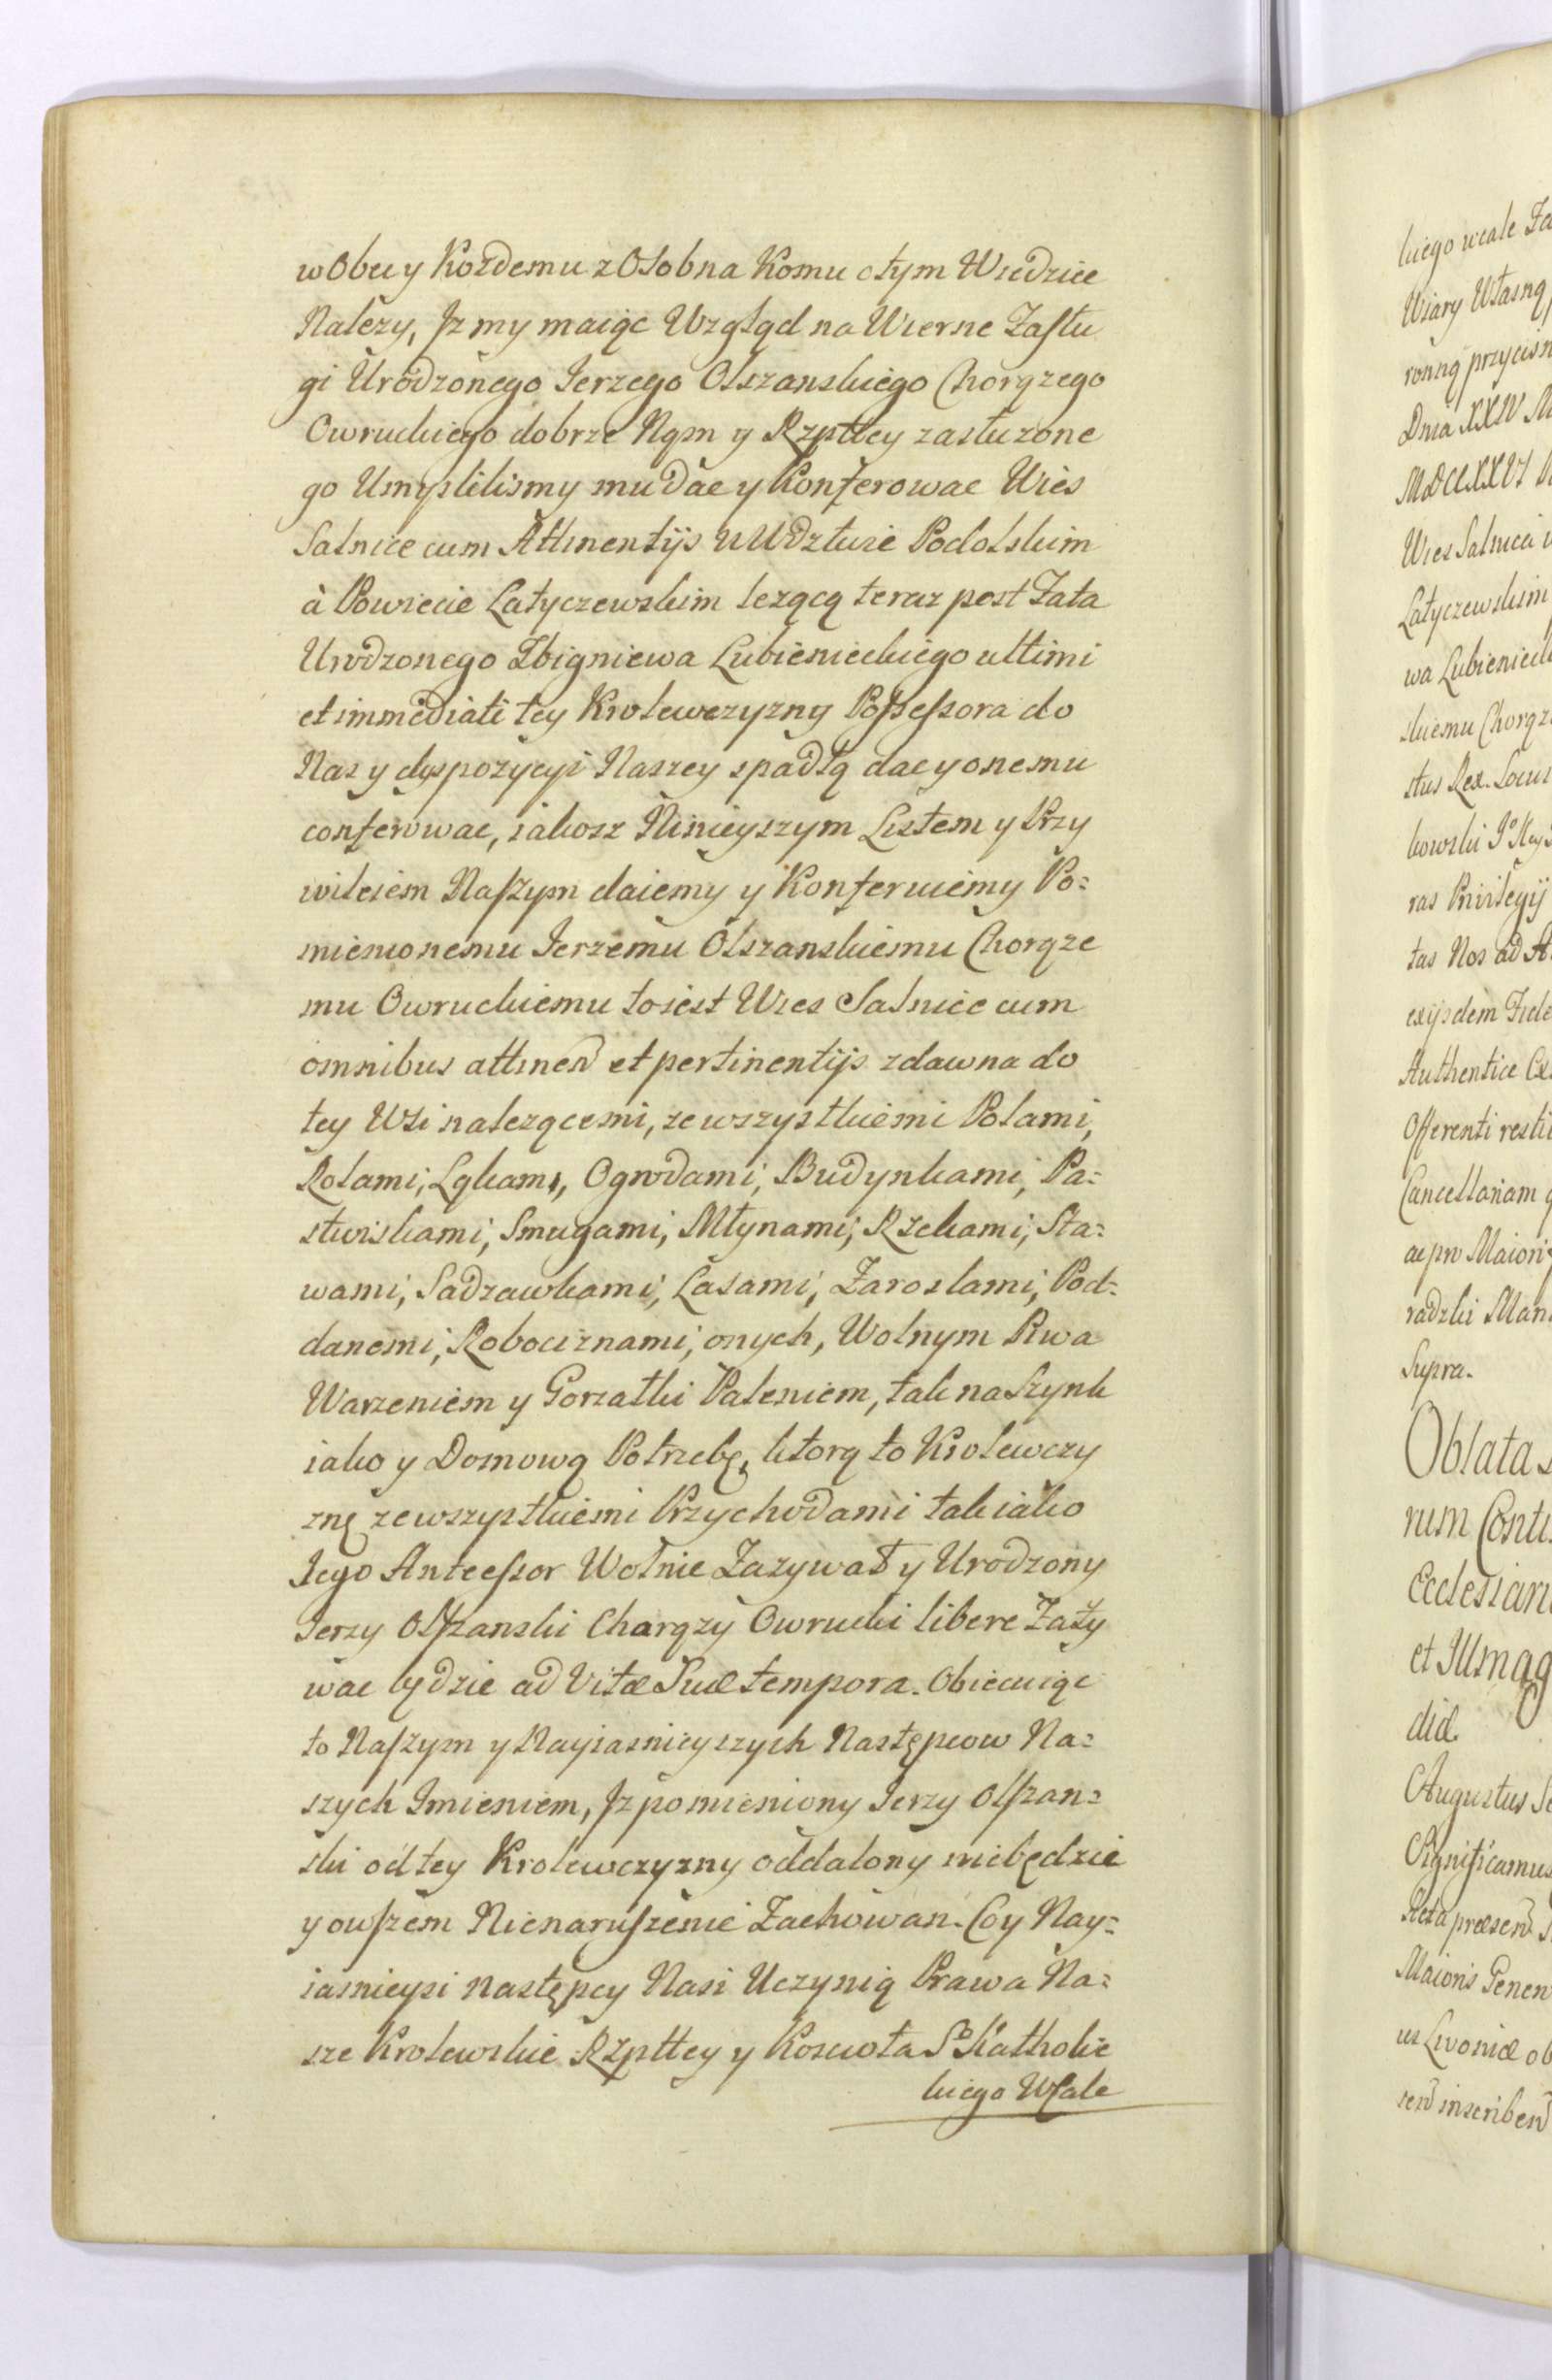 w Obec y Kozdemu z Osobna Komu o tym Wiedziec
Nalezy, Jz my maiąc Wzgląd na Wierne Zasłu
gi Urodzonego Jerzego Olszanskiego Chorązego
Owruckiego dobrze Nąm y Rzpltey zasłuzone
go Umyslilismy mu dac y Konferowac Wies
Salnice cum Attinentijs w Wdztwie Podolskim
à Powiecie Latyczewskim lezącą teraz post Fata
Urodzonego Zbigniewa Lubienieckiego ultimi
et immediati tey Krolewczyzny Possessora do
Nas y dyspozycyi Naszey spadłą dac y onemu
conferowac, iakosz Ninieyszym Listem y Przy
wileiem Naszym daiemy y Konferuiemy Po=
mienionemu Jerzemu Olszanskiemu Chorąze
mu Owruckiemu to iest Wies Salnice cum
omnibus attinen et pertinentijs zdawna do
tey Wsi nalezącemi, ze wszystkiemi Polami,
Rolami, Ląkami, Ogrodami, Budynkami, Pa=
stwiskami, Smugami, Młynami, Rzekami, Sta=
wami, Sadzawkami, Lasami, Zaroslami, Pod=
danemi, Robociznami, onych, Wolnym Piwa
Warzeniem y Gorzałki Paleniem, tak na Szynk
iako y Domową Potrzebę, ktorą to Krolewczy
znę ze wszystkiemi Przychodami tak iako
Jego Antecessor Wolnie Zazywał y Urodzony
Jerzy Olszanski Charązy Owrucki libere Zaży
wac bydzie ad Vitæ Suæ tempora. Obiecuiąc
to Naszym y Nayiasnieyszych Następcow Na=
szych Imieniem, Jz pomieniony Jerzy Olszan=
ski od tey Krolewczyzny oddalony niebędzie
y owszem Nienaruszenie Zachowan. Co y Nay=
iasnieysi Następcy Nasi Uczynią Prawa Na=
sze Krolewskie Rzpltey y Koscioła So Katholic
kiego Wcale

kiego wcale Za
Wiary Własną
ronną przycisn
Dnia XXIV M
MDCCXXVI
Wies Salnica
Latyczewskim
wa Lubienieck
skiemu Chorąz
stus Rex. Locus
kowski
ras Privilegij
tas Nos ad A
exijsdem Fide
Authentice Ex
Offerenti resti
Cancellariam
ac pro Maiori
radzki Man
Supra.
Oblata
rum Conti
Ecclesiaru
et Illmag
diæ
Augustus Se
Significamus
Acta præsen
Maioris Gener
us Livoniæ ob
sen inscriben